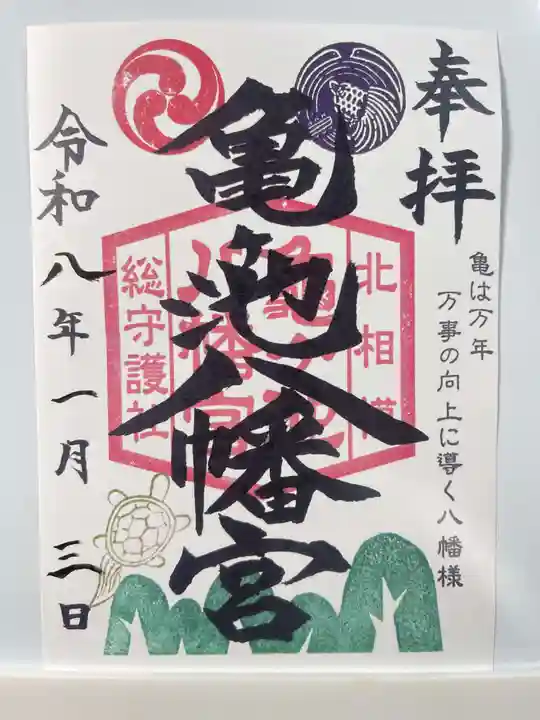 奉拝
亀は万年
万事の向上に導く八幡様
亀池八幡宮
北相模
総守護社
令和八年一月三日